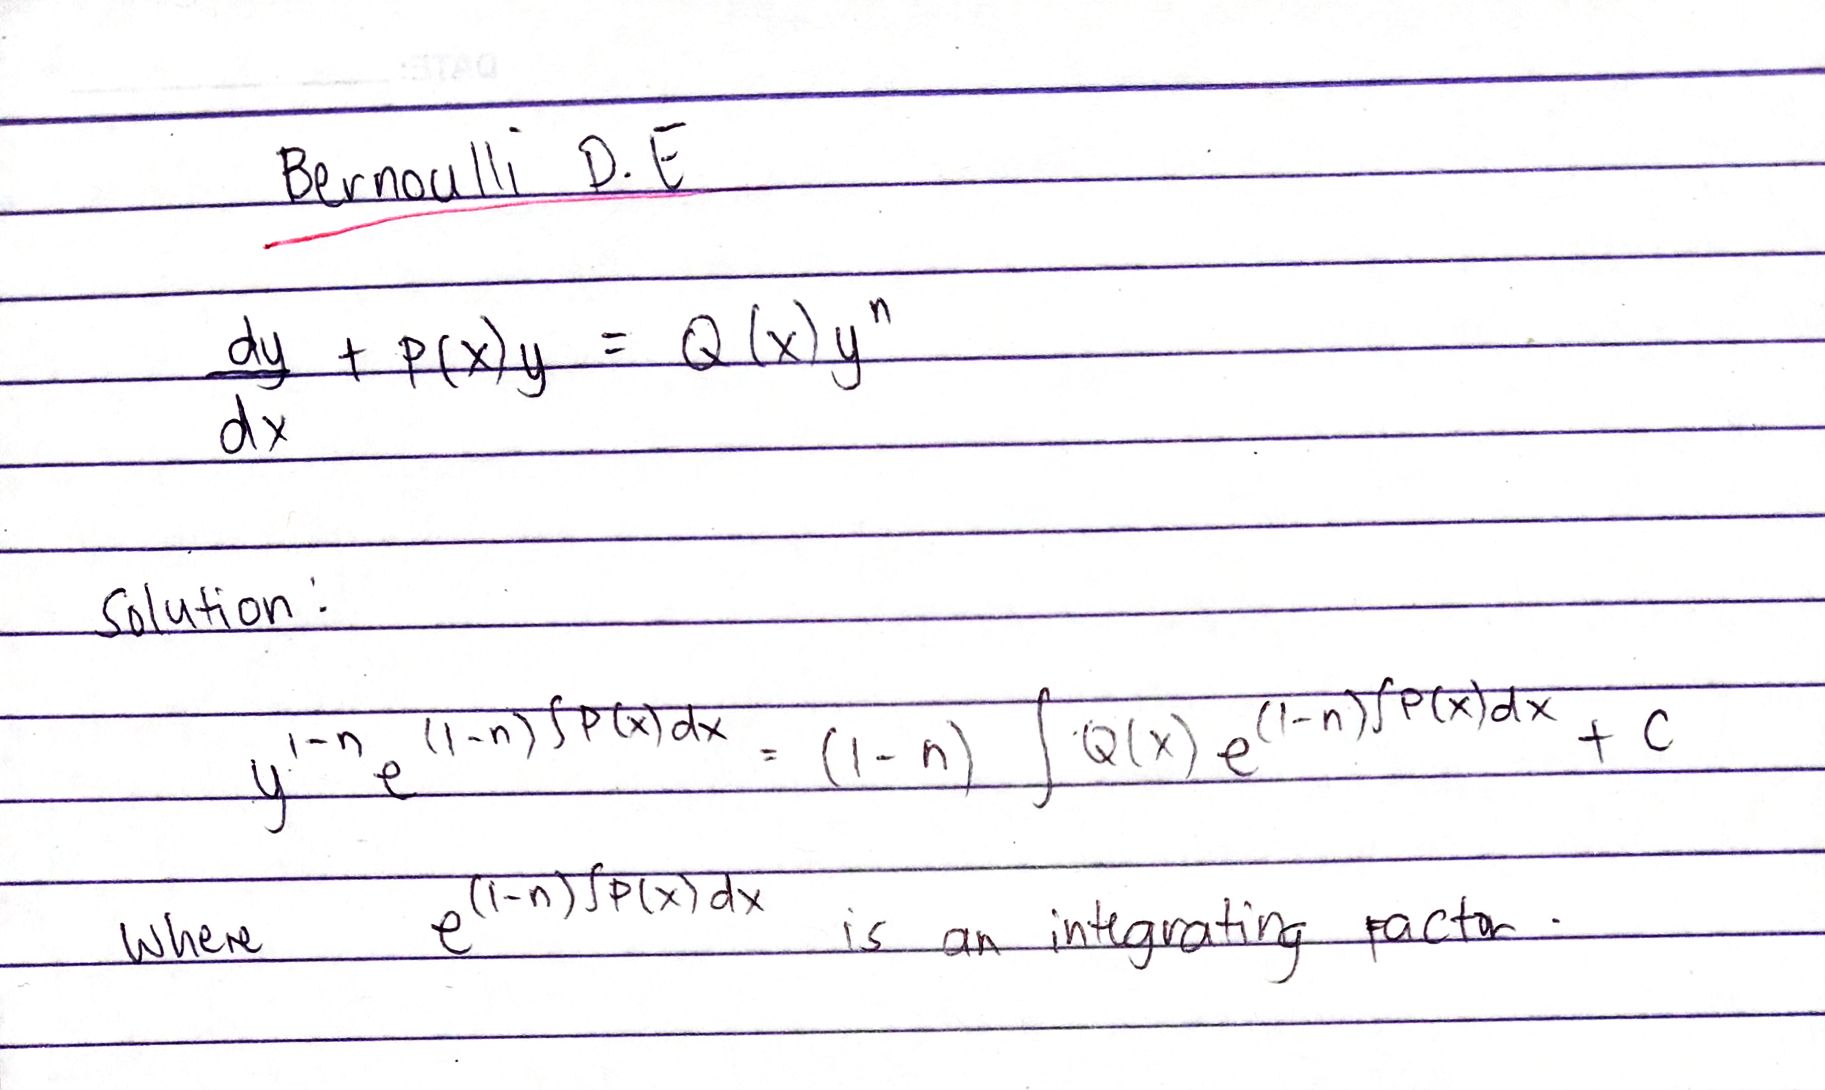 Bernoulli D.E
dy/dx + P(x)y = Q(x)y^n
Solution:
y^(1-n) e^((1-n)∫P(x)dx) = (1-n) ∫ Q(x) e^((1-n)∫P(x)dx) + C
Where e^((1-n)∫P(x)dx) is an integrating factor.